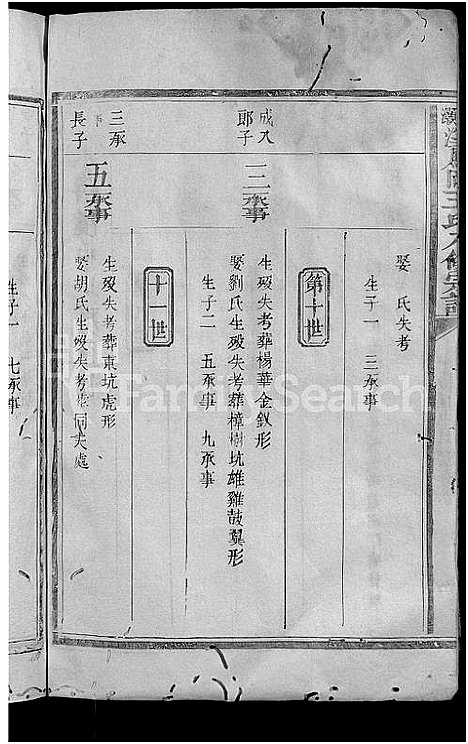 娶　氏失考
生子一　三承事
第十世
成八
郎子
三承事
生殁失考葬楊華金釵形
娶劉氏生殁失考葬樟樹坑雄雞鼓翼形
生子二　五承事　九承事
十一世
三承
事
長子
五承事
生殁失考葬東坑虎形
娶胡氏生殁失考葬同夫處
生子一　七承事
FamilySearch